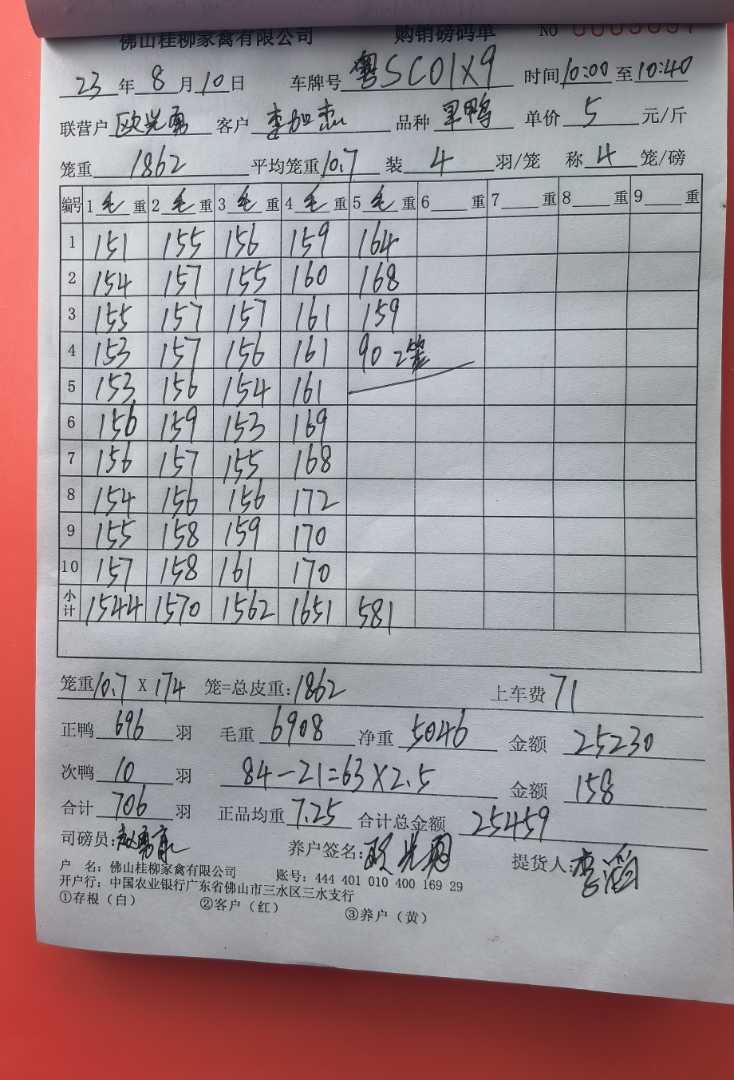 佛山桂柳家禽有限公司 购销磅码单 NO
23年8月10日 车牌号粤SC01X9 时间10:00至10:40
联营户 欧光勇 客户 李加杰 品种 单价 5 元/斤
笼重 1862 平均笼重10.7 装 4 羽/笼 称 4 笼/磅
编号 1毛重 2毛重 3毛重 4毛重 5毛重 6重 7重 8重 9重
1 151 155 156 159 164
2 154 157 155 160 168
3 155 157 157 161 159
4 153 157 156 161 90 2笼
5 153 156 154 161
6 156 159 153 169
7 156 157 155 168
8 154 156 156 172
9 155 158 159 170
10 157 158 161 170
小计 1544 1570 1562 1651 581
笼重10.7X174 笼=总皮重:1862 上车费 71
正鸭 696 羽 毛重 6908 净重 5046 金额 25230
次鸭 10 羽 84-21=63X2.5 金额 158
合计 706 羽 正品均重 7.25 合计总金额 25459
司磅员: 养户签名: 提货人:李滔
户 名:佛山桂柳家禽有限公司 账号:444 401 010 400 169 29
开户行:中国农业银行广东省佛山市三水区三水支行
①存根(白) ②客户(红) ③养户(黄)